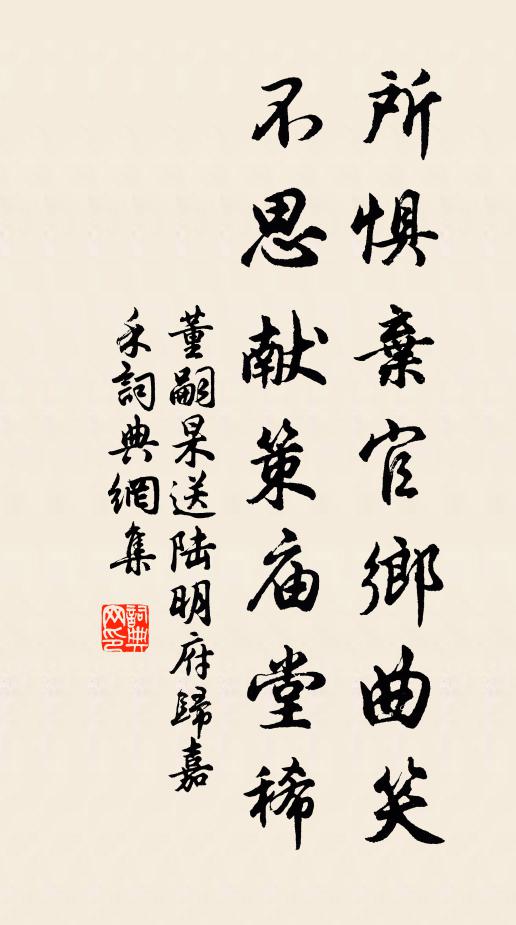 所惧棄官鄉曲笑
不思献策庙堂稀
董嗣杲送陆明府歸嘉
禾詞典網集
詞典
网印